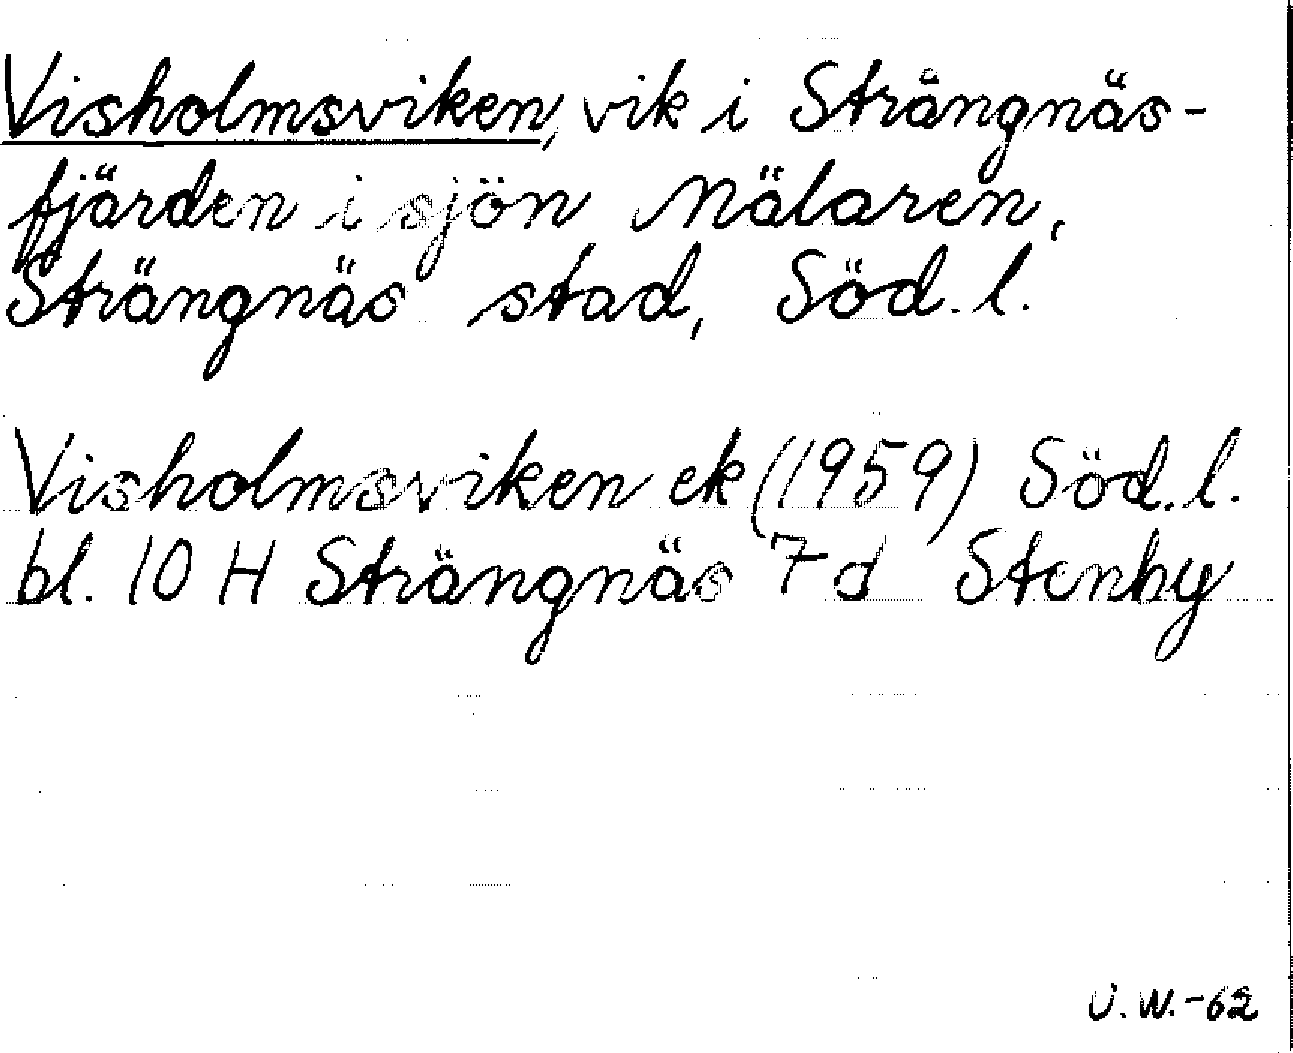 Visholmsviken, vik i Strängnäs-
fjärden i sjön Mälaren,
Strängnäs stad, Söd. l.
Visholmsviken ek (1959) Söd. l.
bl. 10 H Strängnäs 7 d Stenby
U. W. -62